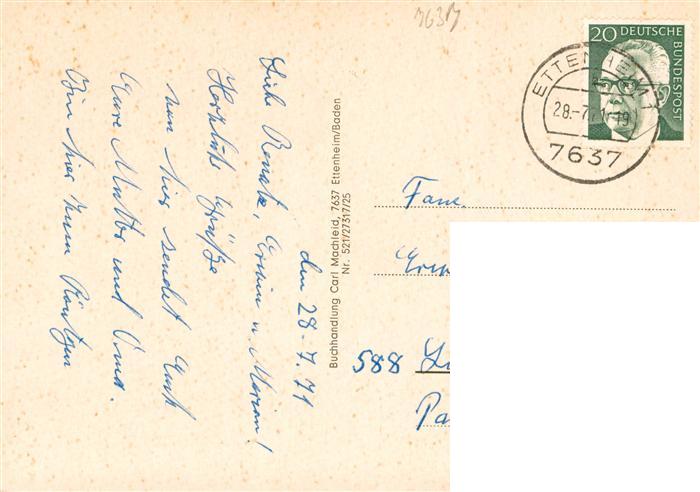 7637
20 DEUTSCHE
BUNDESPOST
ETTENHEIM 1
28.-7.71-19
7637
den 28.7.71
Liebe Renate, Erwin u. Marion!
Herzliche Grüße
von hier sendet Euch
Eure Mutter und Oma.
Bin hier zum Röntgen
Buchhandlung Carl Machleid, 7637 Ettenheim/Baden
Nr. 521/27317/25
Fam.
Erw
588 Lü
Pa